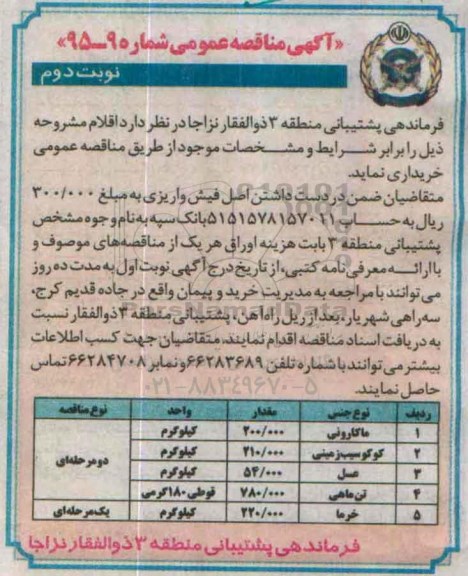 «آگهی مناقصه عمومی شماره ۹-۹۵»
نوبت دوم
فرماندهی پشتیبانی منطقه ۳ ذوالفقار نزاجا در نظر دارد اقلام مشروحه
ذیل را برابر شرایط و مشخصات موجود از طریق مناقصه عمومی
خریداری نماید.
متقاضیان ضمن در دست داشتن اصل فیش واریزی به مبلغ ۳۰۰/۰۰۰
ریال به حساب ۵۱۵۱۵۷۸۱۵۷۰۲۱ بانک سپه به نام وجوه مشخص
پشتیبانی منطقه ۳ بابت هزینه اوراق هر یک از مناقصه‌های موصوف و
با ارائه معرفی‌نامه کتبی، از تاریخ درج آگهی نوبت اول به مدت ده روز
می‌توانند با مراجعه به مدیریت خرید و پیمان واقع در جاده قدیم کرج،
سه‌راهی شهریار، بعد از ریل راه‌آهن، پشتیبانی منطقه ۳ ذوالفقار نسبت
به دریافت اسناد مناقصه اقدام نمایند، متقاضیان جهت کسب اطلاعات
بیشتر می‌توانند با شماره تلفن ۶۶۲۸۳۶۸۹ و نمابر ۶۶۲۸۴۷۰۸ تماس
حاصل نمایند.
۰۲۱-۸۸۳۴۹۶۷۰-۵
ردیف نوع جنس مقدار واحد نوع مناقصه
۱ ماکارونی ۲۰۰/۰۰۰ کیلوگرم
۲ کوکوسیب‌زمینی ۲۱۰/۰۰۰ کیلوگرم
دومرحله‌ای
۳ عسل ۵۴/۰۰۰ کیلوگرم
۴ تن‌ماهی ۷۸۰/۰۰۰ قوطی ۱۸۰ گرمی
۵ خرما ۲۲۰/۰۰۰ کیلوگرم یک‌مرحله‌ای
فرماندهی پشتیبانی منطقه ۳ ذوالفقار نزاجا